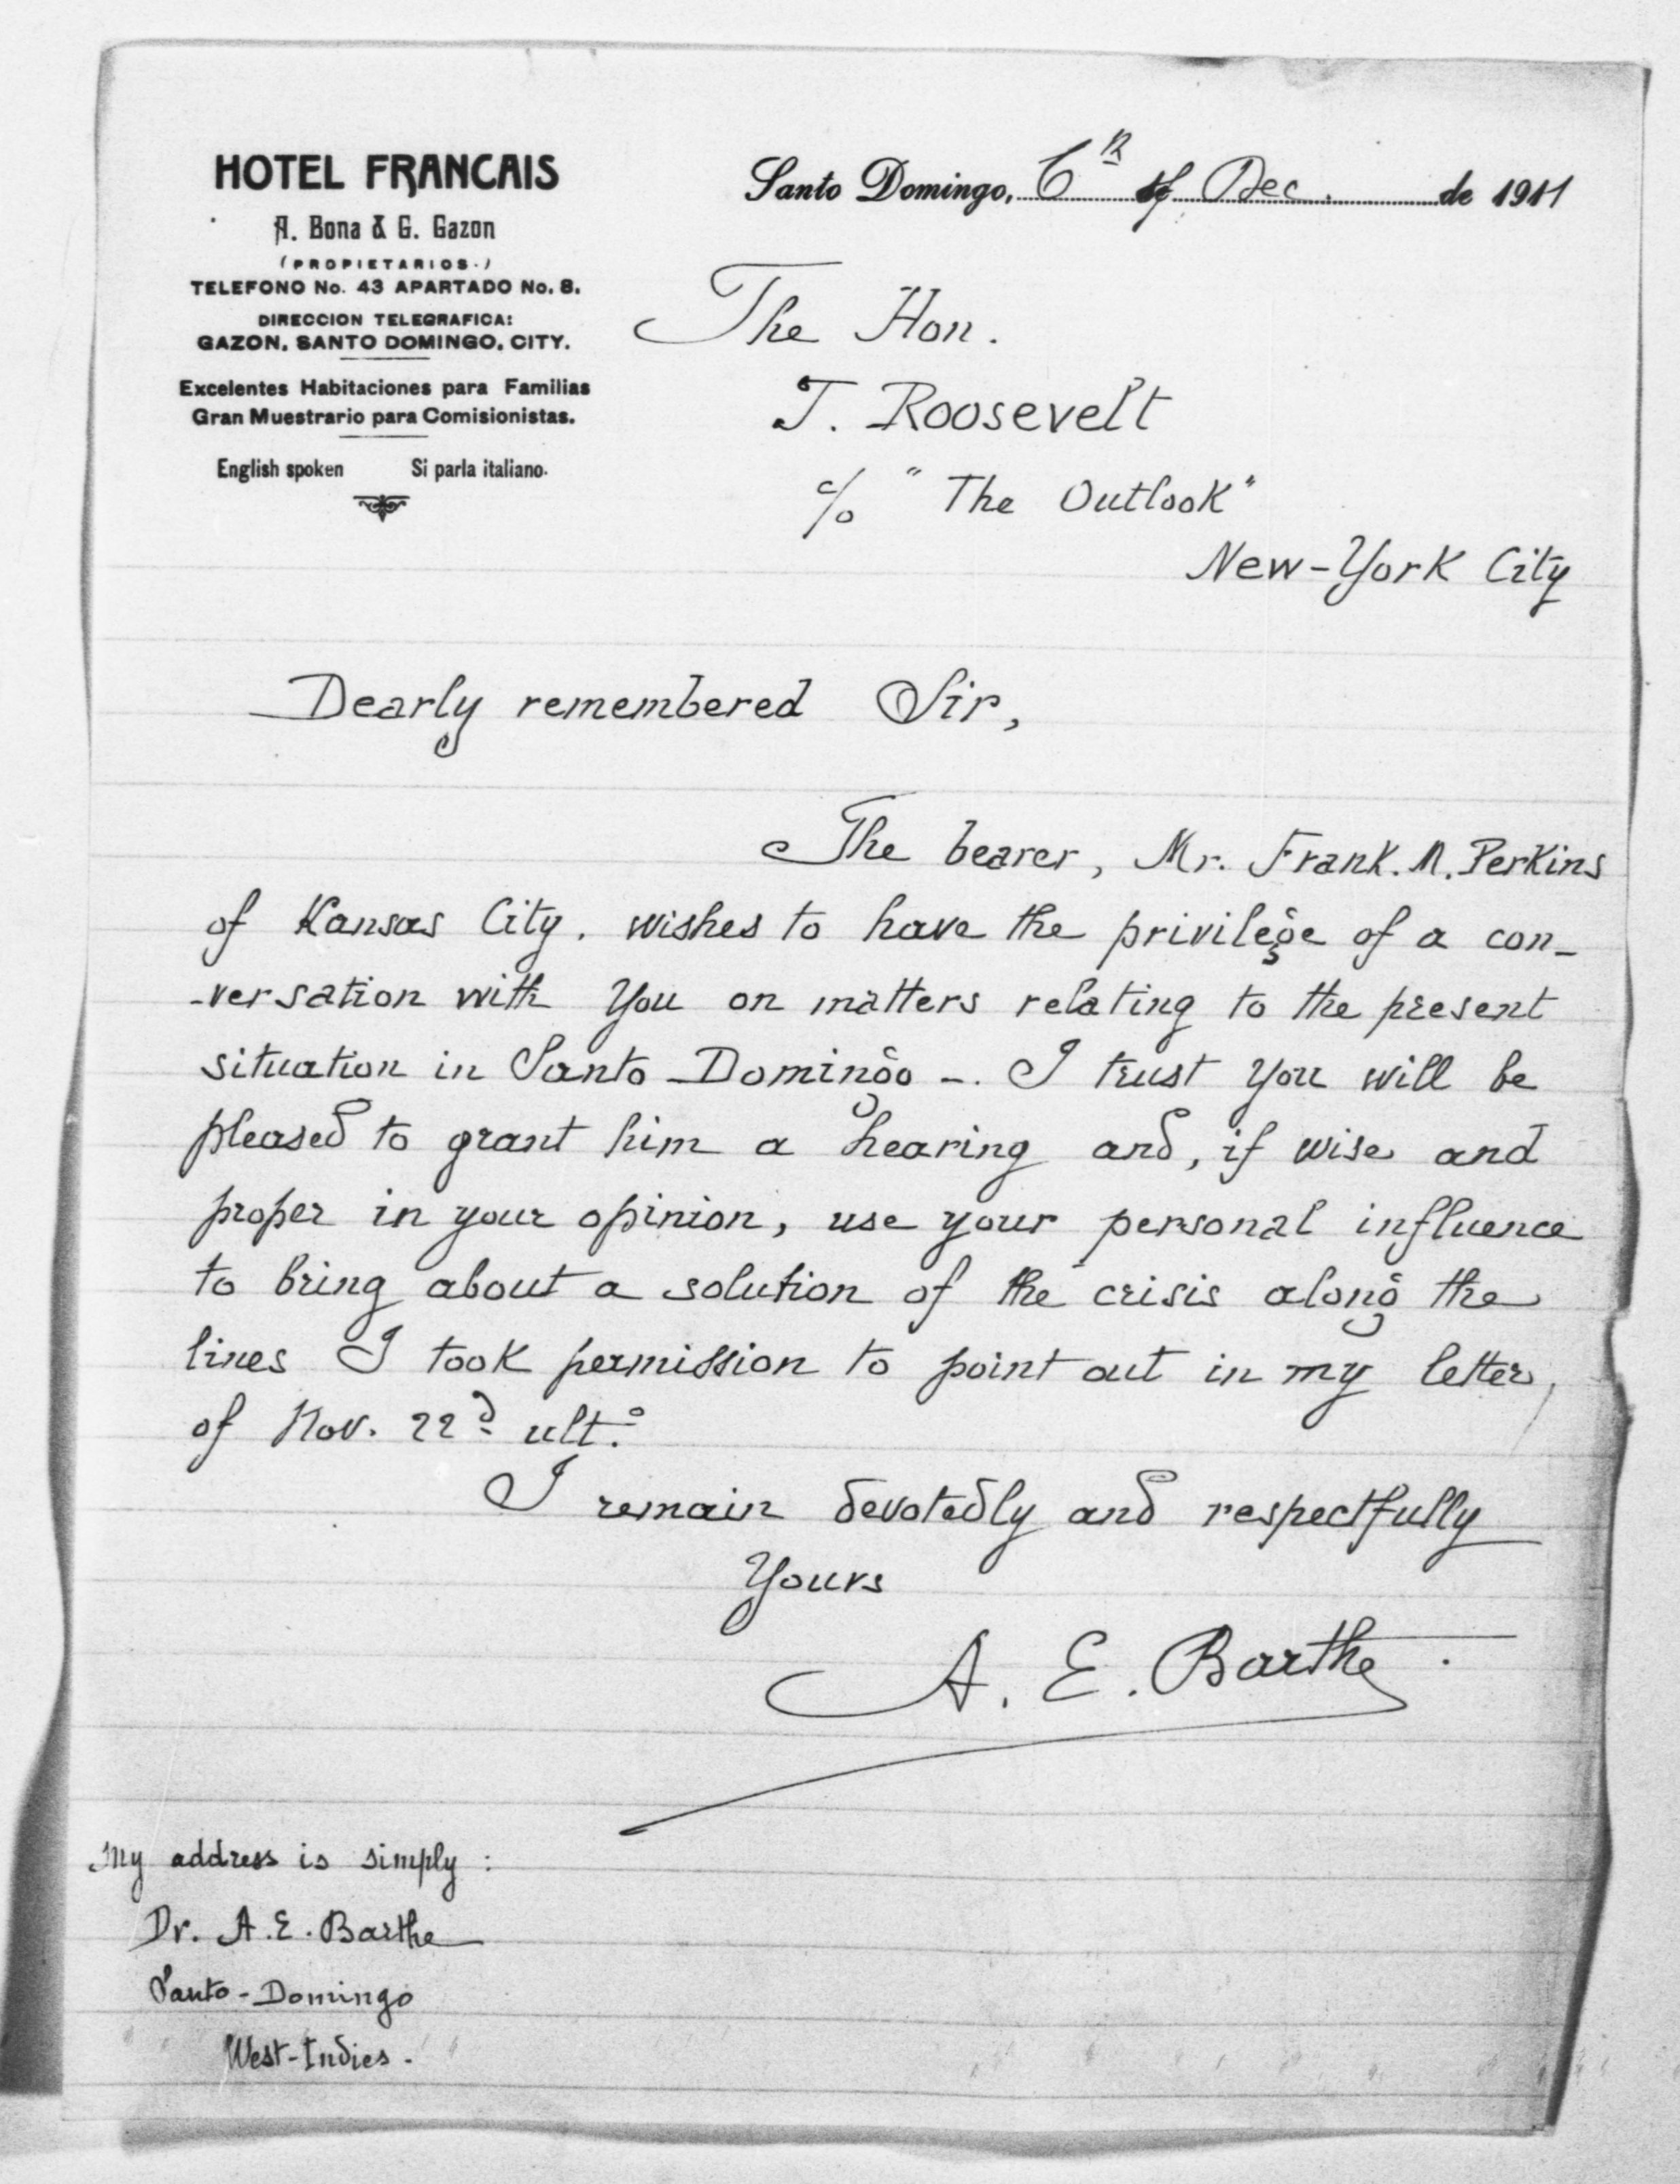 HOTEL FRANCAIS
A. Bona & G. Gazon
(PROPIETARIOS.)
TELEFONO No. 43 APARTADO No. 8.
DIRECCION TELEGRAFICA:
GAZON, SANTO DOMINGO, CITY.
Excelentes Habitaciones para Familias
Gran Muestrario para Comisionistas.
English spoken Si parla italiano.
Santo Domingo, 6th of Dec. de 1911
The Hon.
T. Roosevelt
c/o "The Outlook"
New-York City
Dearly remembered Sir,
The bearer, Mr. Frank. M. Perkins
of Kansas City. wishes to have the privilege of a con-
-versation with You on matters relating to the present
situation in Santo Domingo -. I trust you will be
pleased to grant him a hearing and, if wise and
proper in your opinion, use your personal influence
to bring about a solution of the crisis along the
lines I took permission to point out in my letter,
of Nov. 22d ulto.
I remain devotedly and respectfully
Yours
A. E. Barthe.
My address is simply :
Dr. A. E. Barthe
Santo-Domingo
West-Indies.